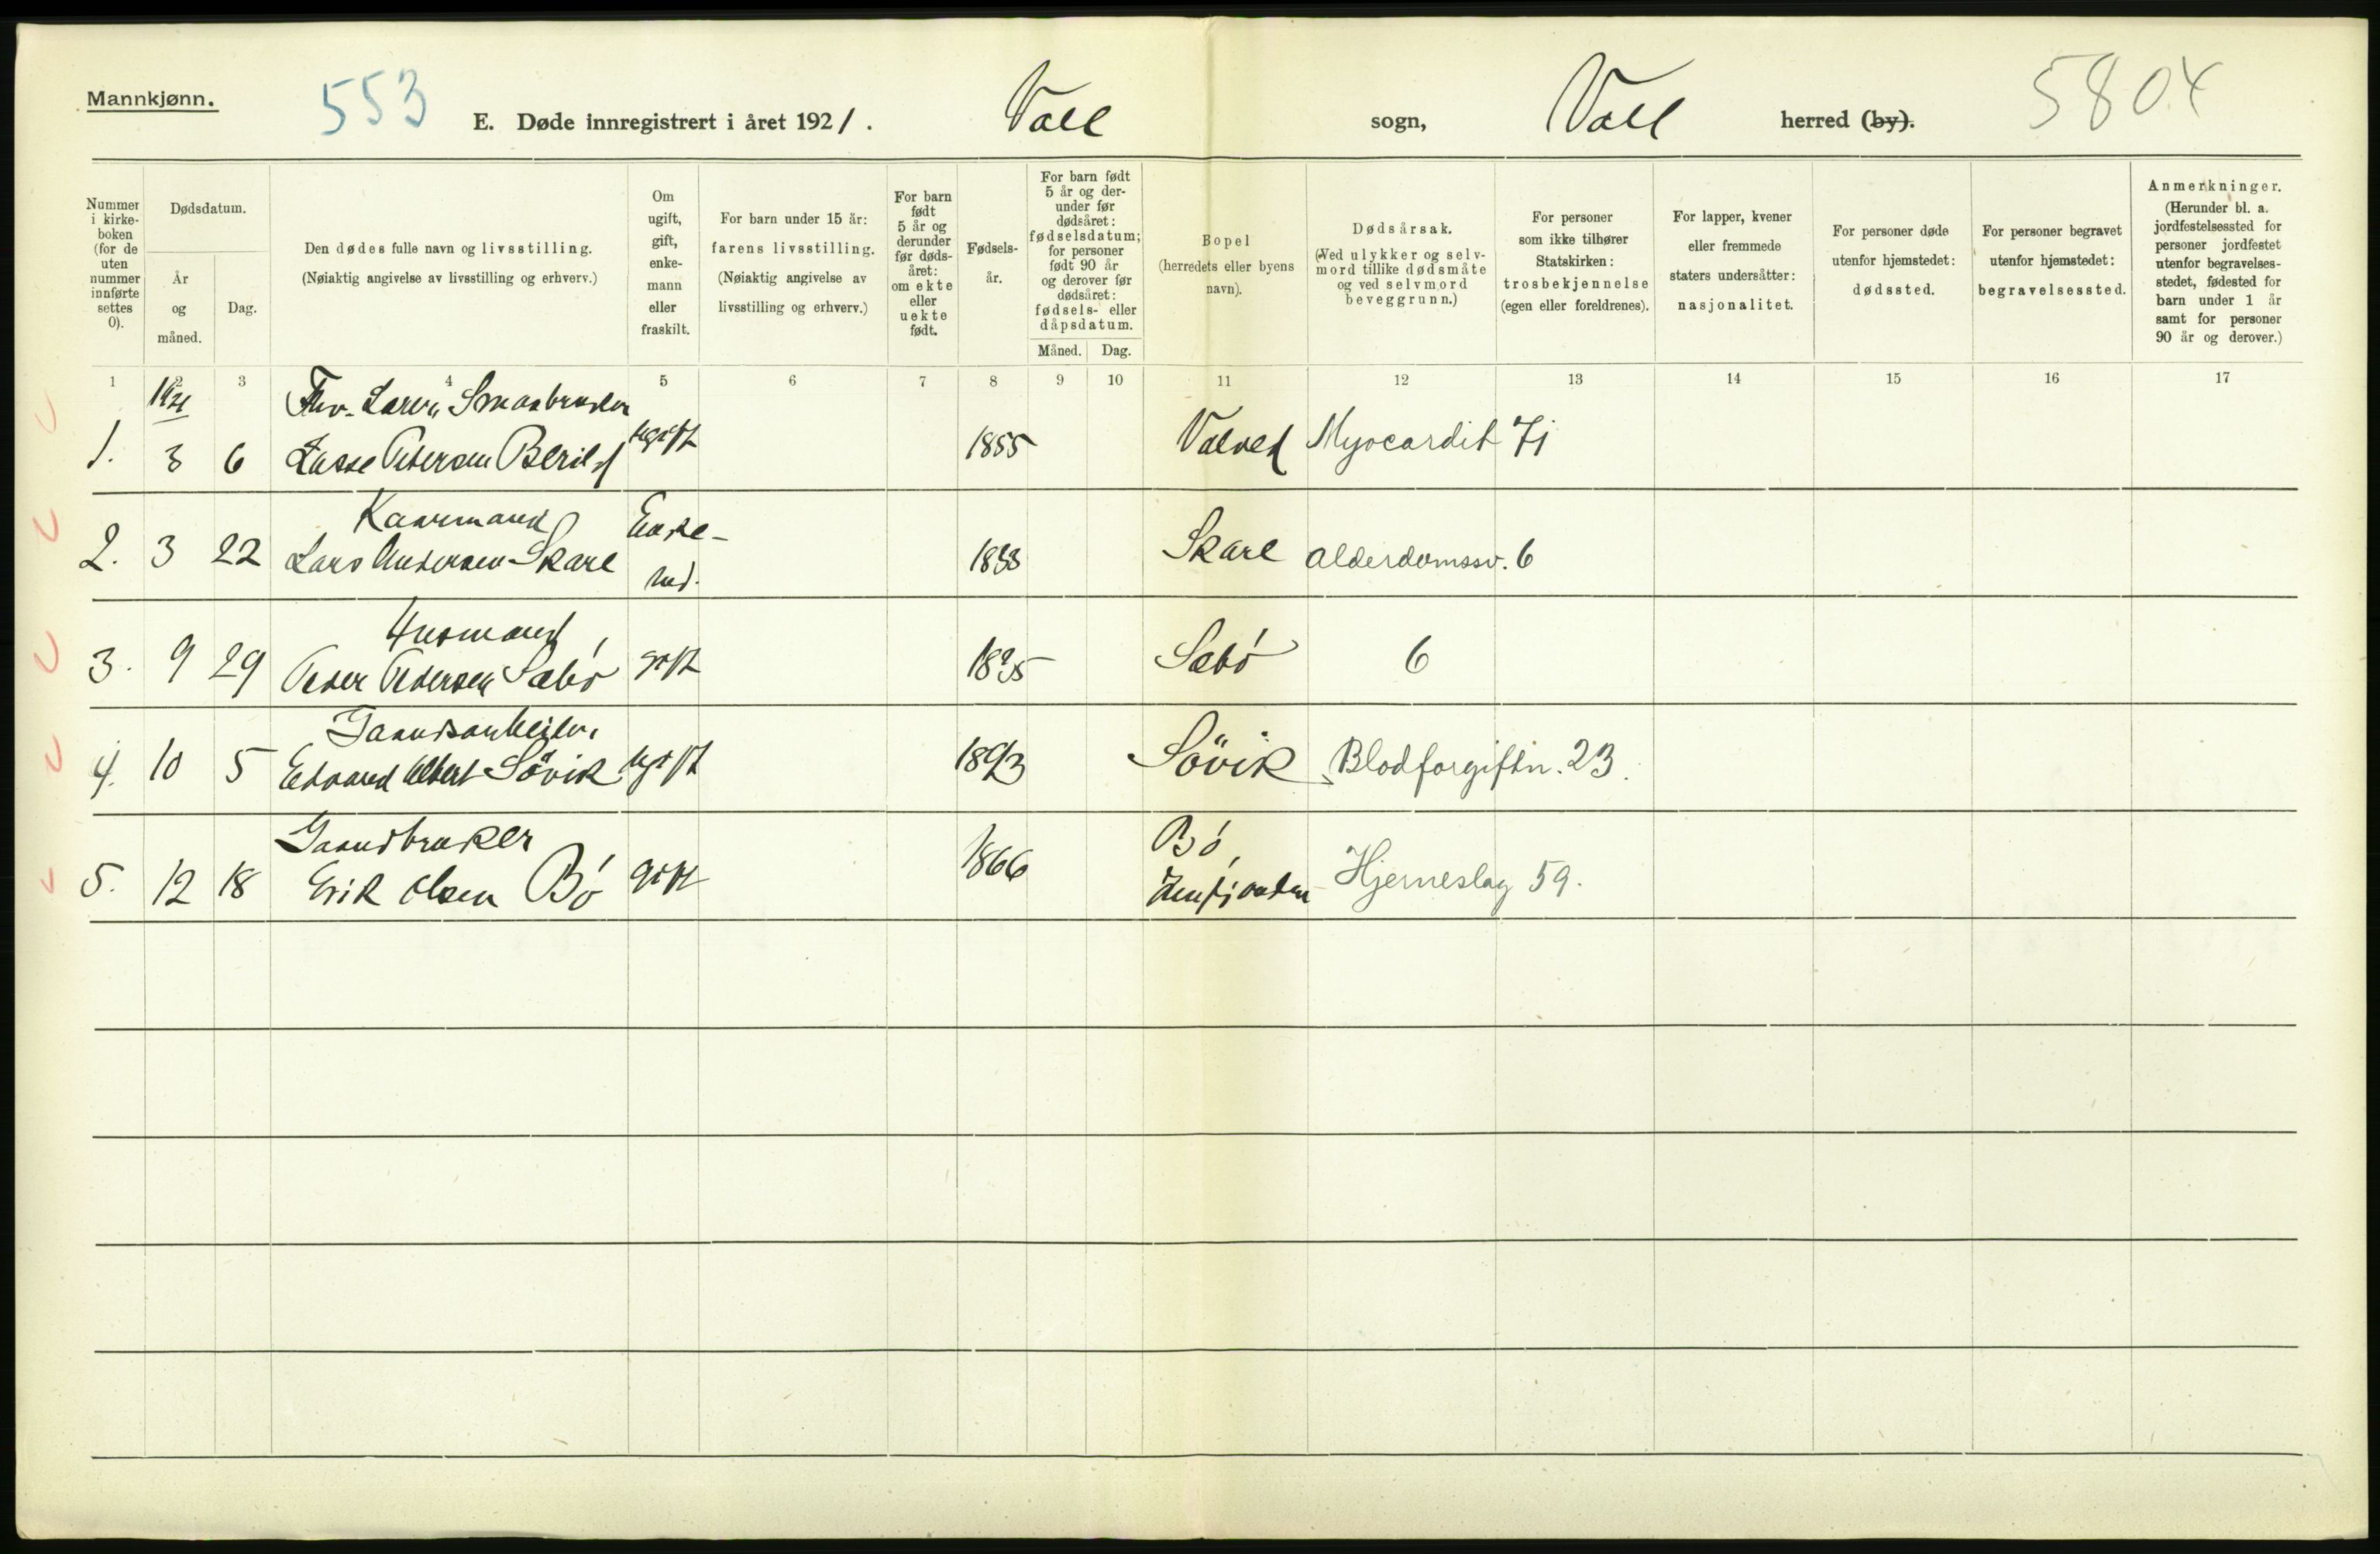 Mannkjønn.
553
E. Døde innregistrert i året 1921.
Voll
sogn,
Voll
herred (by).
5804
Nummer i kirke-boken (for de uten nummer innførte settes 0).
Dødsdatum.
År og måned.
Dag.
Den dødes fulle navn og livsstilling.
(Nøiaktig angivelse av livsstilling og erhverv.)
Om ugift, gift, enke-mann eller fraskilt.
For barn under 15 år:
farens livsstilling.
(Nøiaktig angivelse av livsstilling og erhverv.)
For barn født 5 år og derunder før døds-året: om ekte eller uekte født.
Fødsels-år.
For barn født 5 år og der-under før dødsåret: fødselsdatum; for personer født 90 år og derover før dødsåret: fødsels- eller dåpsdatum.
Måned.
Dag.
Bopel
(herredets eller byens navn).
Dødsårsak.
(Ved ulykker og selv-mord tillike dødsmåte og ved selvmord beveggrunn.)
For personer som ikke tilhører Statskirken: trosbekjennelse (egen eller foreldrenes).
For lapper, kvener eller fremmede staters undersåtter: nasjonalitet.
For personer døde utenfor hjemstedet: dødssted.
For personer begravet utenfor hjemstedet: begravelsessted.
Anmerkninger.
(Herunder bl. a. jordfestelsessted for personer jordfestet utenfor begravelses-stedet, fødested for barn under 1 år samt for personer 90 år og derover.)
1 2 3 4 5 6 7 8 9 10 11 12 13 14 15 16 17
1921
Smaabruker
1. 3 6 Lasse Petersen ugift 1855 Myocardit 71
Kaarmand Enke-
2. 3 22 Lars Andersen Skare md. Skare alderdomssv. 6
Husmand
3. 9 29 Peder Pedersen Sæbö gift 1835 Sæbö 6
Gaardsarbeider
4. 10 5 Edvard Albert Sövik ugift 1893 Sövik Blodforgiftn. 23.
Gaardbruker Bö,
5. 12 18 Erik Olsen Bö gift 1866 Hjerneslag 59.